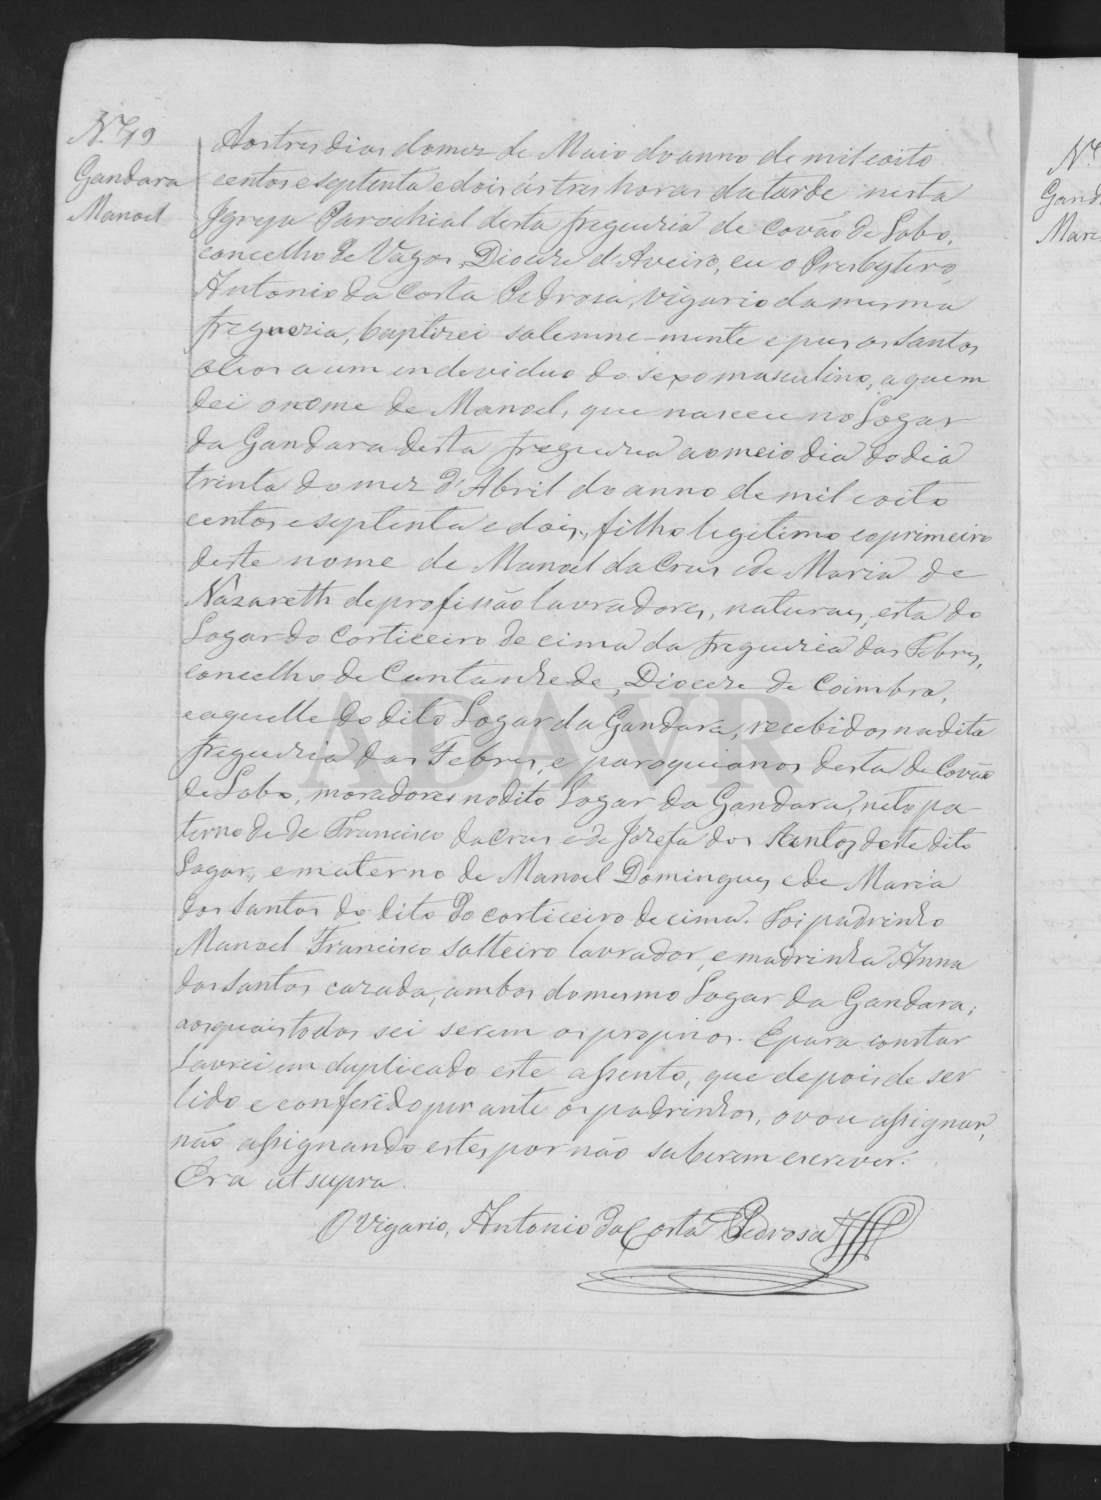 Nº 19
Gandara
Manoel
Aos tres dias do mez de Maio do anno de mil e oito
centos e septenta e dois ás tres horas da tarde nesta
Igreja Parochial desta freguezia de Covão de Lobo,
concelho de Vagos, Dioceze d'Aveiro, eu o Presbytero,
Antonio da Costa Pedrosa, vigario da mesma
freguezia, baptizei solemne-mente e puz os santos
oleos a um endeviduo do sexo masculino, a quem
dei o nome de Manoel, que nasceu no Logar
da Gandara desta freguezia ao meio dia do dia
trinta do mez d'Abril do anno de mil e oito
centos e septenta e dois, filho legitimo e o primeiro
deste nome de Manoel da Crus e de Maria de
Nazareth de profissão lavradores, naturaes, esta do
Logar do Corticeiro de cima da freguezia das Febres,
concelho de Cantanhede, Dioceze de Coimbra,
e aquelle do dito Logar da Gandara, recebidos na dita
freguezia das Febres, e paroquianos desta de Covão
de Lobo, moradores no dito Logar da Gandara, neto pa-
terno de de Francisco da Crus e de Josefa dos Santos deste dito
Logar, e materno de Manoel Domingues e de Maria
dos Santos do dito do Corticeiro de cima. Foi padrinho
Manoel Francisco solteiro lavrador, e madrinha Anna
dos Santos cazada, ambos do mesmo Logar da Gandara;
aos quais todos sei serem os proprios. E para constar
Lavrei em duplicado este assento, que depois de ser
lido e conferido perante os padrinhos, o vou assignar,
não assignando estes por não saberem escrever.
Era ut supra.
O Vigario, Antonio da Costa Pedrosa
Nº
Gand
Mar
ADAVR